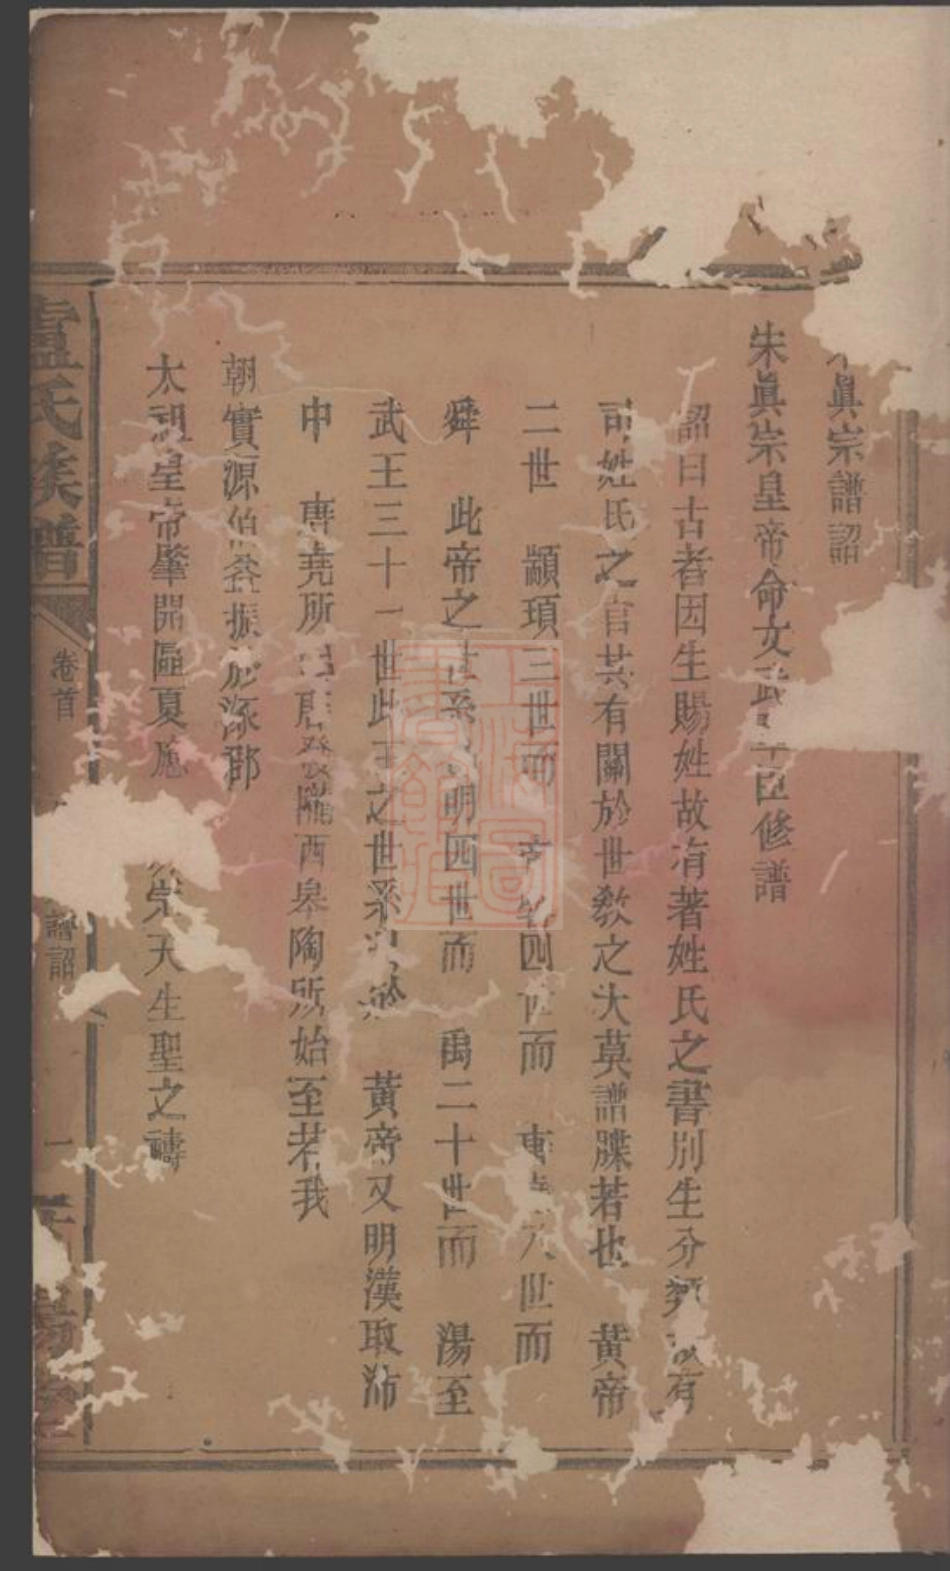 眞宗譜詔
朱眞宗皇帝命文武臣修譜
詔曰古者因生賜姓故有著姓氏之書別生分類有
司姓氏之官其有關於世敎之大莫譜牒若也 黃帝
二世 顓頊三世而 四世而 八世而
舜 此帝之世系明四世而 禹二十世而 湯至
武王三十一世此王之世系 黃帝又明漢取沛
中 唐堯所 隴西皋陶所始至若我
朝實源伯益振於涿郡
太祖皇帝肇開區夏應 宗天生聖之禱
盧氏族譜
卷首
譜詔
一